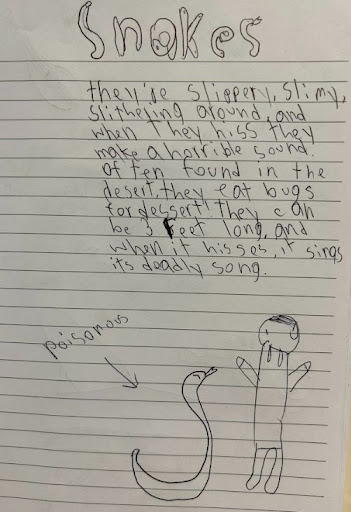 Snakes
they're slippery, slimy,
slithering around, and
when they hiss they
make a horrible sound.
often found in the
desert, they eat bugs
for dessert! They can
be 3 feet long, and
when it hisses, it sings
its deadly song.
poisonous